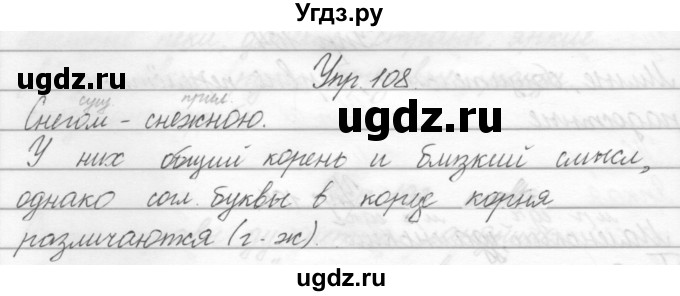 Угдз.ру
Упр. 108.
ugdz.ru
сущ. прил.
Снегом - снежною.
ugdz.ru
У них общий корень и близкий смысл,
однако согл. буквы в корце корня
ugdz.ru
различаются (г-ж).
ugdz.ru